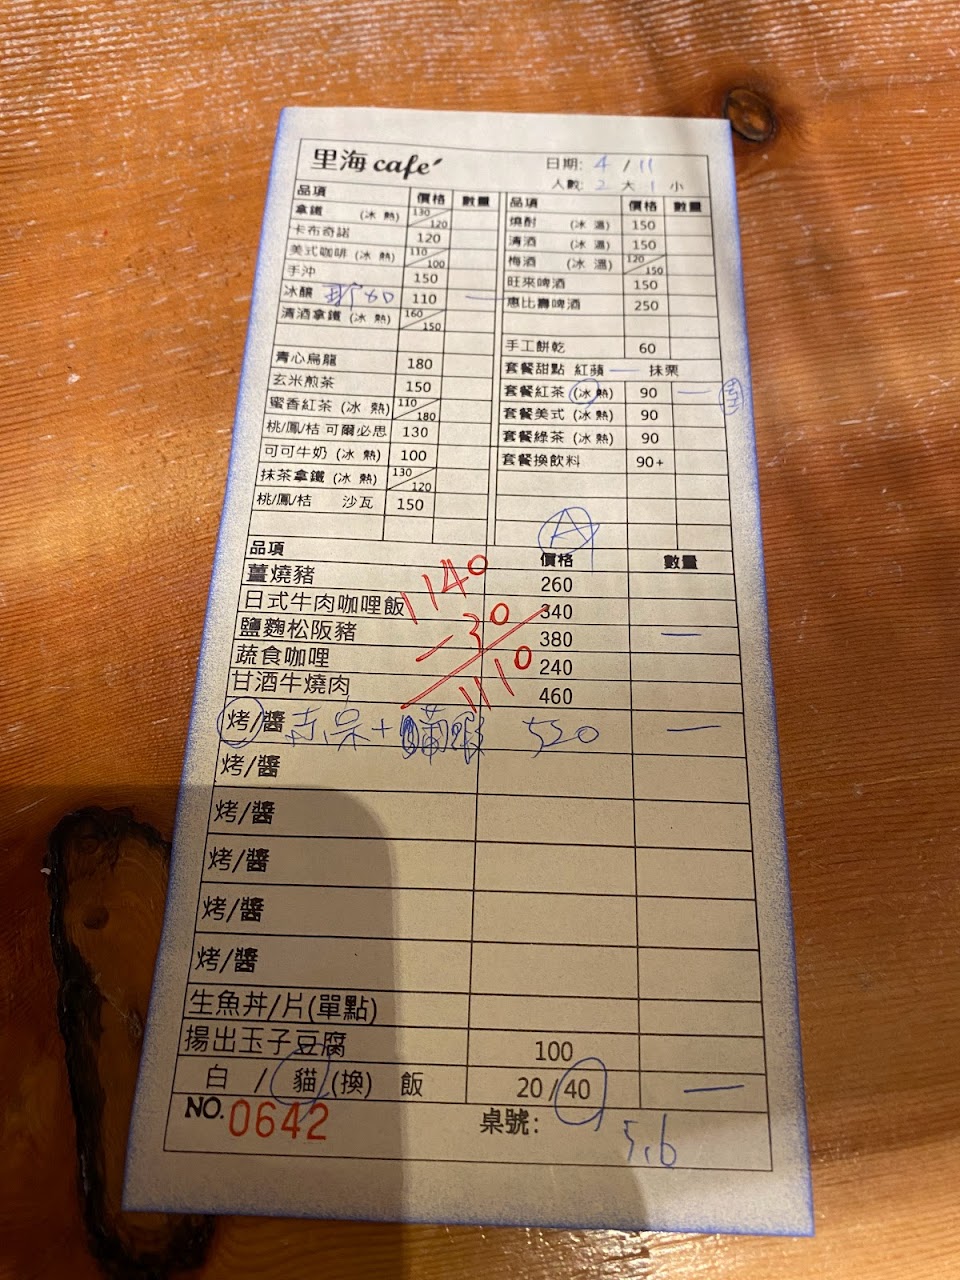 里海 café
日期: 4 / 11
人數: 2 大 1 小
品項 價格 數量
拿鐵 (冰 熱) 130/120
卡布奇諾 120
美式咖啡 (冰 熱) 110/100
手沖 150
冰釀 耶加 110 一
清酒拿鐵 (冰 熱) 160/150
青心烏龍 180
玄米煎茶 150
蜜香紅茶 (冰 熱) 110/180
桃/鳳/桔 可爾必思 130
可可牛奶 (冰 熱) 100
抹茶拿鐵 (冰 熱) 130/120
桃/鳳/桔 沙瓦 150
品項 價格 數量
燒酎 (冰 溫) 150
清酒 (冰 溫) 150
梅酒 (冰 溫) 120/150
旺來啤酒 150
惠比壽啤酒 250
手工餅乾 60
套餐甜點 紅蘋 一 抹栗
套餐紅茶 (冰 熱) 90 一
套餐美式 (冰 熱) 90
套餐綠茶 (冰 熱) 90
套餐換飲料 90+
A
品項 價格 數量
薑燒豬 260
日式牛肉咖哩飯 340
鹽麴松阪豬 380 一
蔬食咖哩 240
甘酒牛燒肉 460
1140
-30
1110
烤/醬 520 一
烤/醬
烤/醬
烤/醬
烤/醬
烤/醬
生魚丼/片(單點)
揚出玉子豆腐 100
白 / 貓 (換) 飯 20 / 40 一
NO. 0642 桌號: 5,6